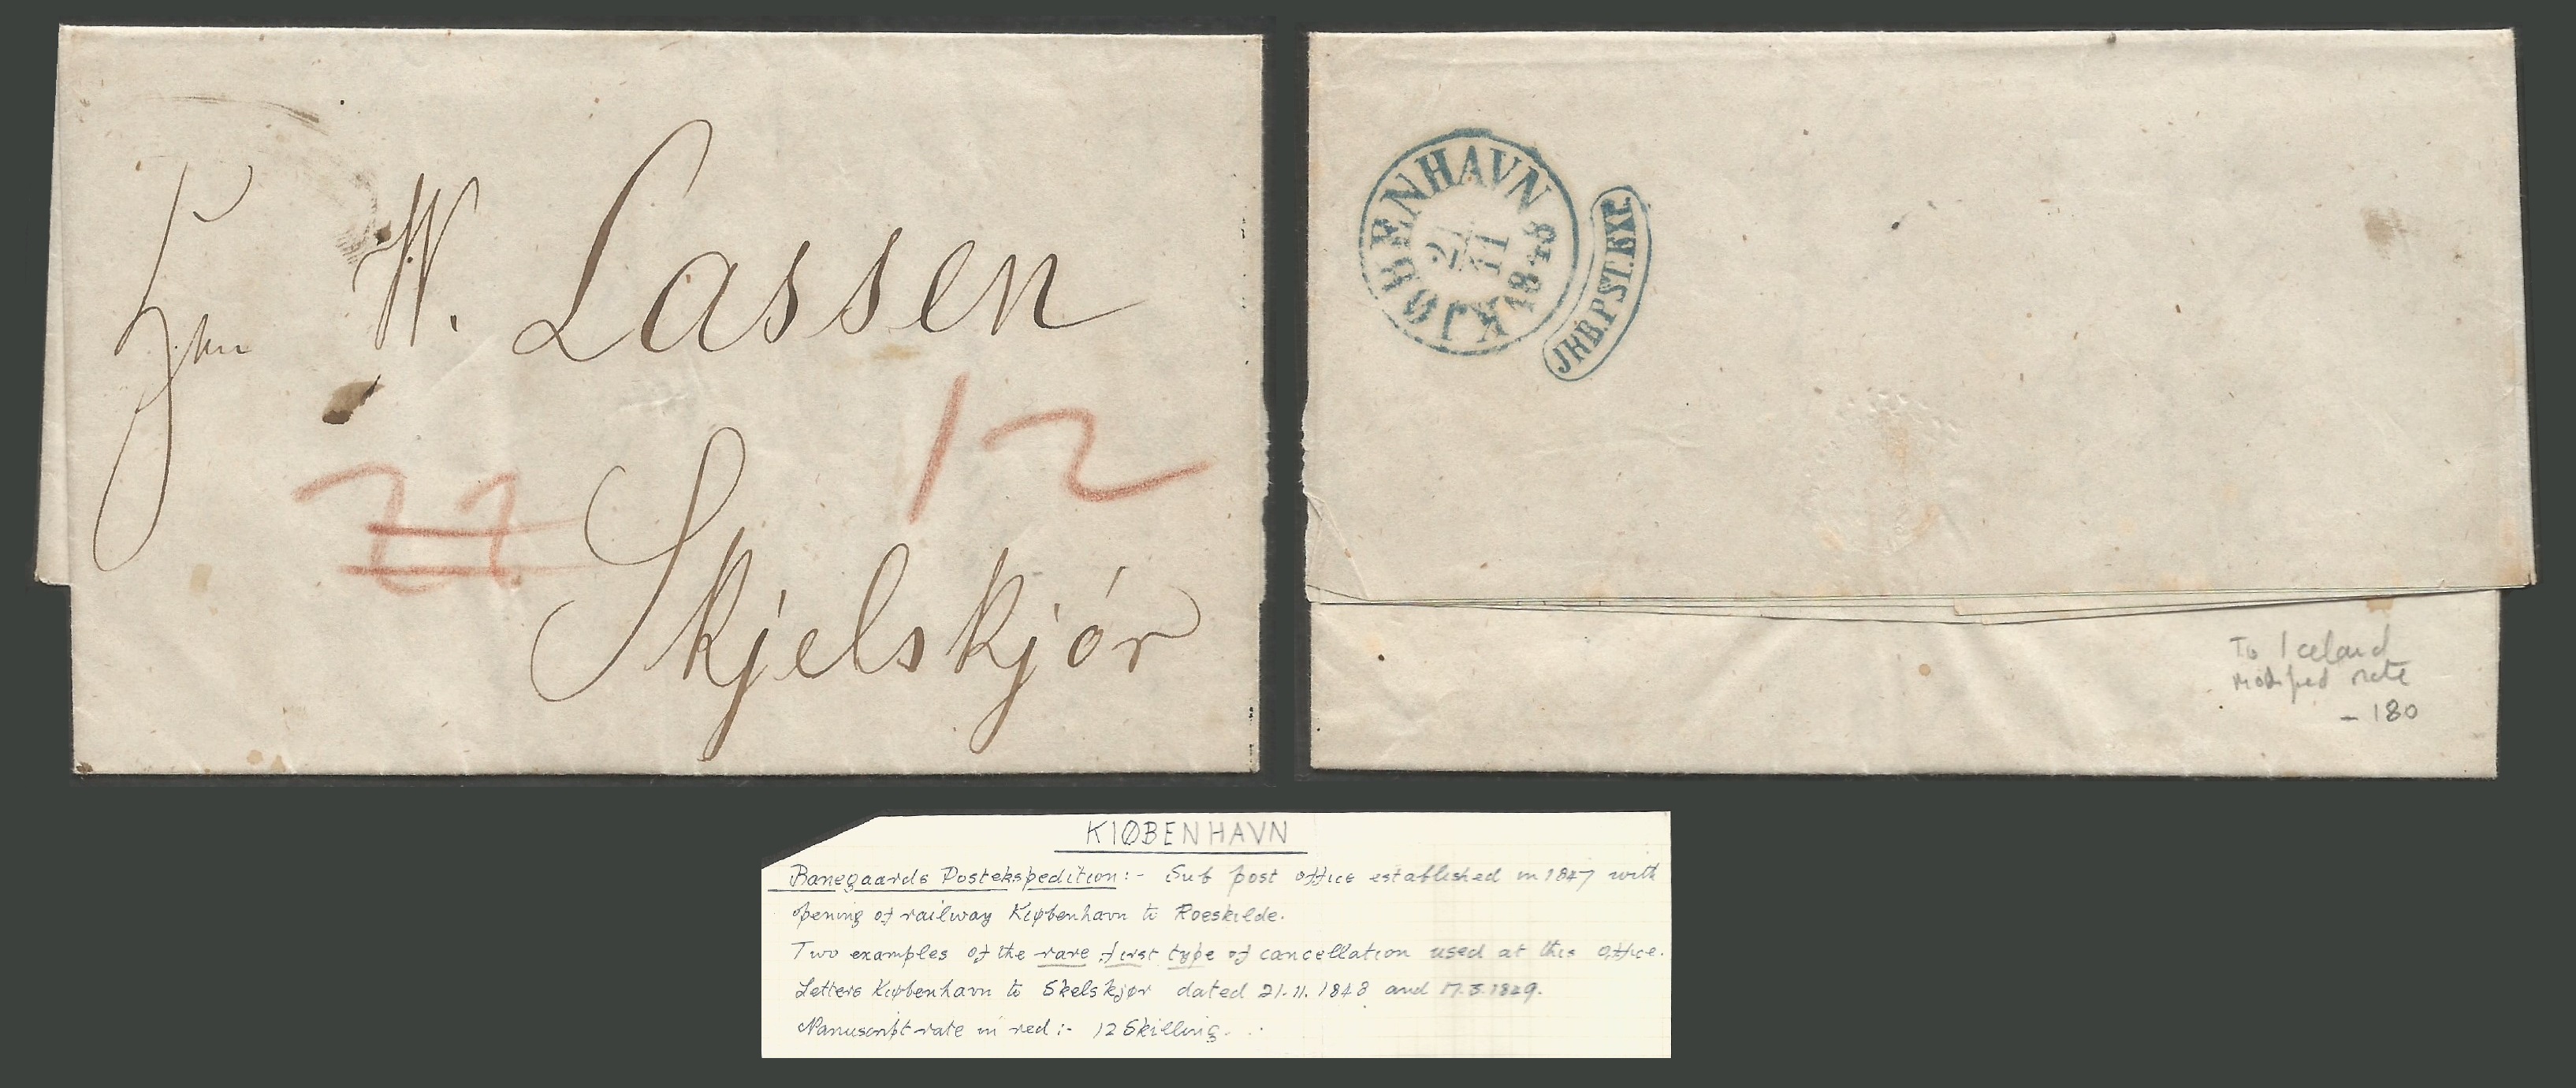 W. Lassen
12
Skjelskjör
KJØBENHAVN
21
11
1848
JHB.P.ST.EXP.
To Iceland
modified rate
– 180
KIØBENHAVN
Banegaards Postekspedition:- Sub post office established in 1847 with
opening of railway Kiøbenhavn to Roeskilde.
Two examples of the rare first type of cancellation used at this office.
Letters Kiøbenhavn to Skelskjør dated 21.11.1848 and 17.5.1849.
Manuscript rate in red:- 12 Skilling.